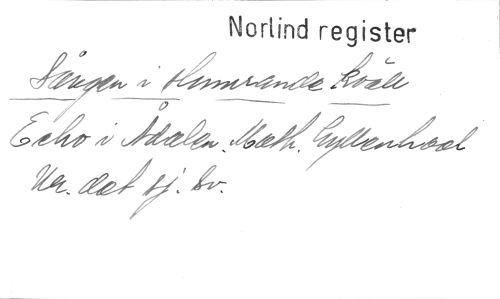 Norlind register
Sången i skimrande kväll
Echo i Ådalen. Math. Gyllenhaal
Ur. det sj. Sv.